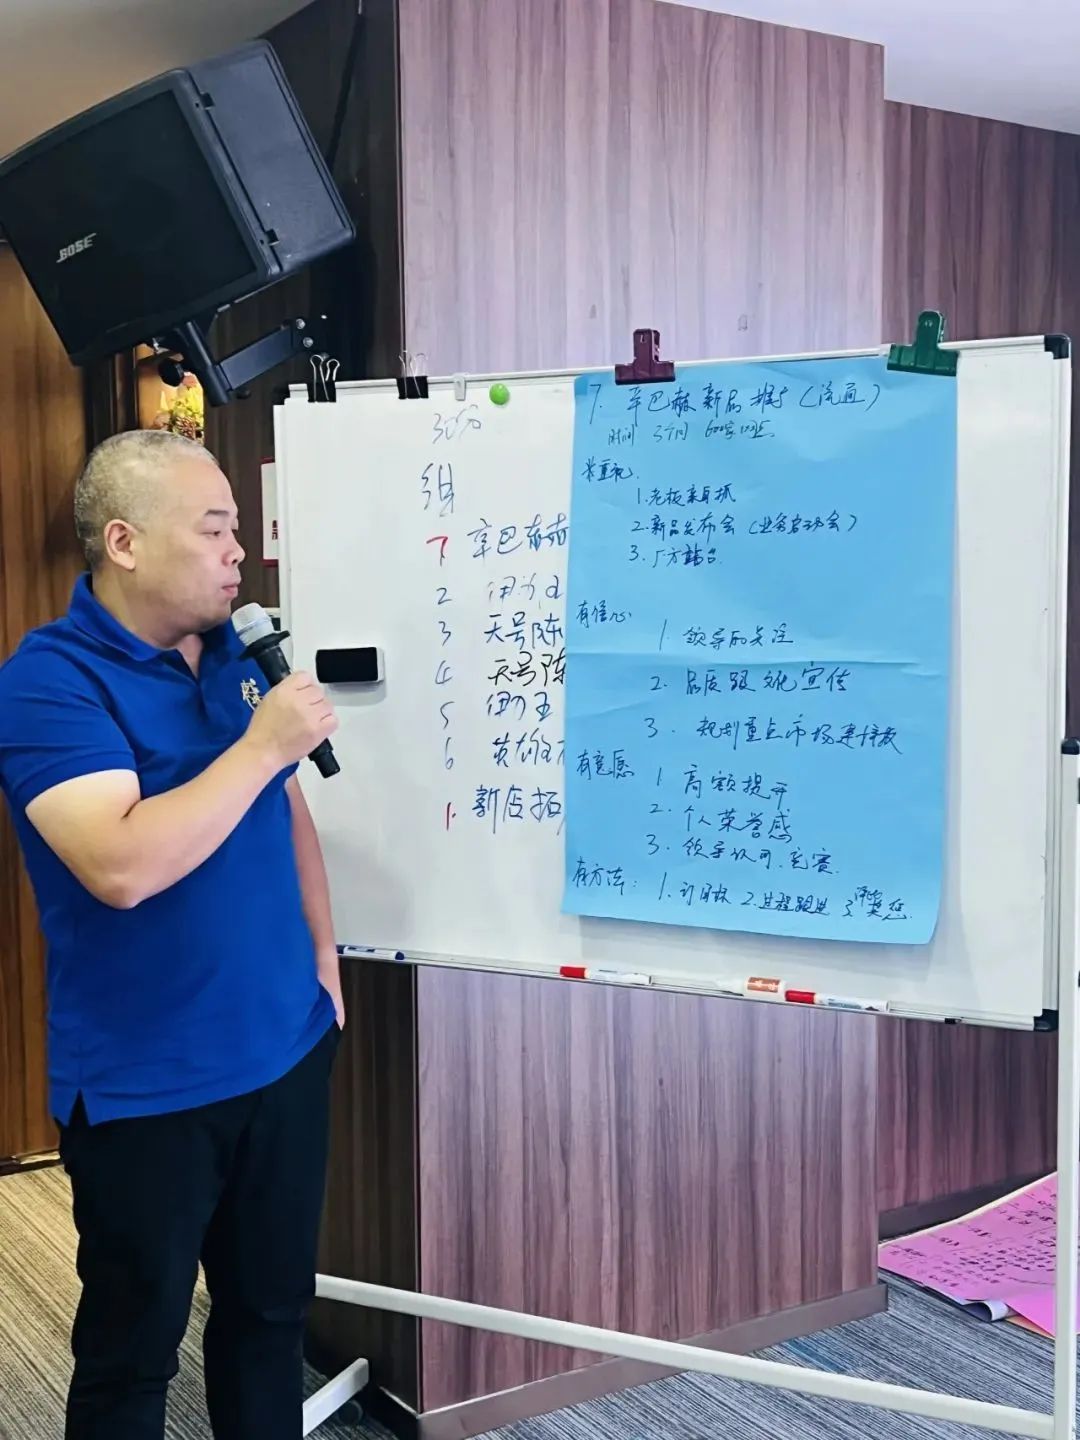 BOSE
30分
组
7 辛巴赫
2 伊力王
3 天号陈
4 天号陈
5 伊力王
6 英雄
1. 新店拓
7. 辛巴赫新品推广(流通)
时间 3个月 600家
重视
1. 老板亲自抓
2. 新品发布会(业务启动会)
3. 厂方站台
有信心
1. 领导的关注
2. 品质跟文化宣传
3. 规划重点市场
有意愿
1 高额提
2. 个人荣誉感
3. 领导认可、竞赛
有方法: 1. 订目标 2. 过程跟进 3